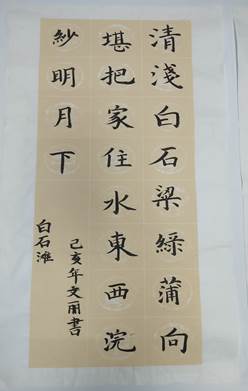 清淺白石梁綠蒲向
堪把家住水東西浣
紗明月下
白石灘
己亥年文丽書